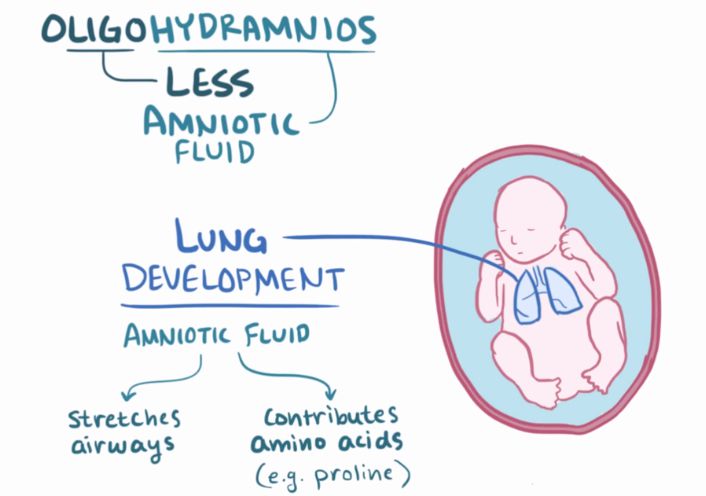 OLIGOHYDRAMNIOS
LESS
AMNIOTIC
FLUID
LUNG
DEVELOPMENT
AMNIOTIC FLUID
Stretches
airways
Contributes
amino acids
(e.g. proline)